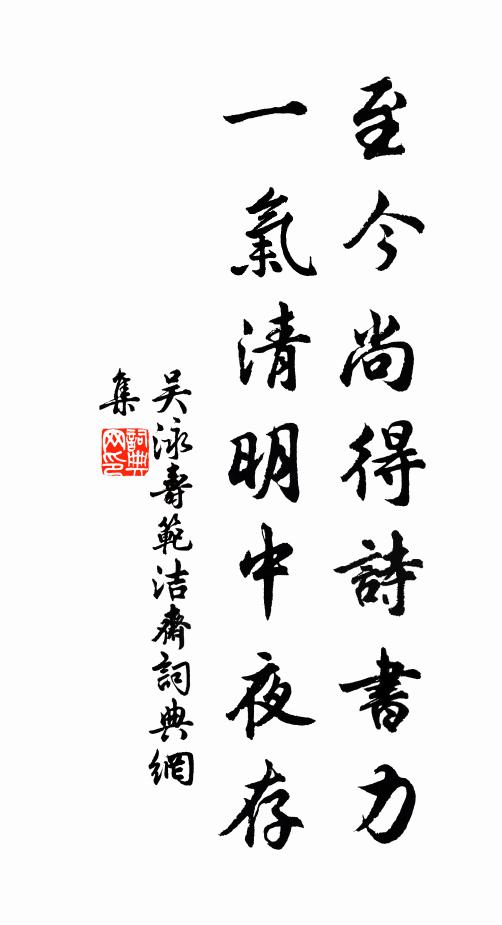 至今尚得詩書力
一氣清明中夜存
吴泳壽範洁齋詞典網
集
詞典网印